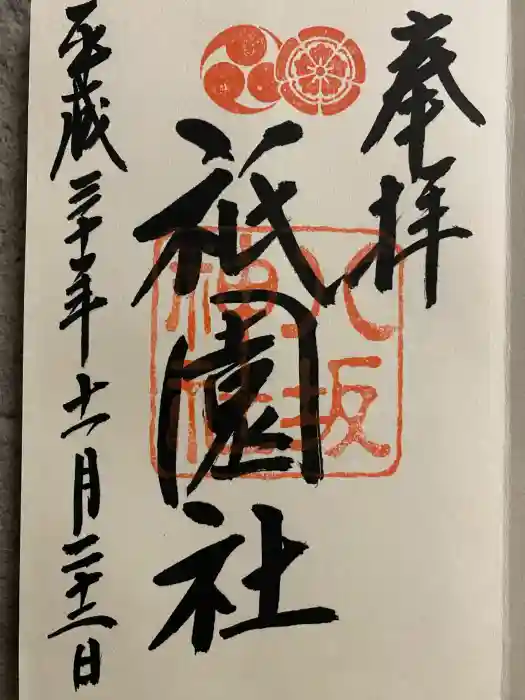 奉拝
祇園社
八坂
神社
平成三十年十一月二十三日